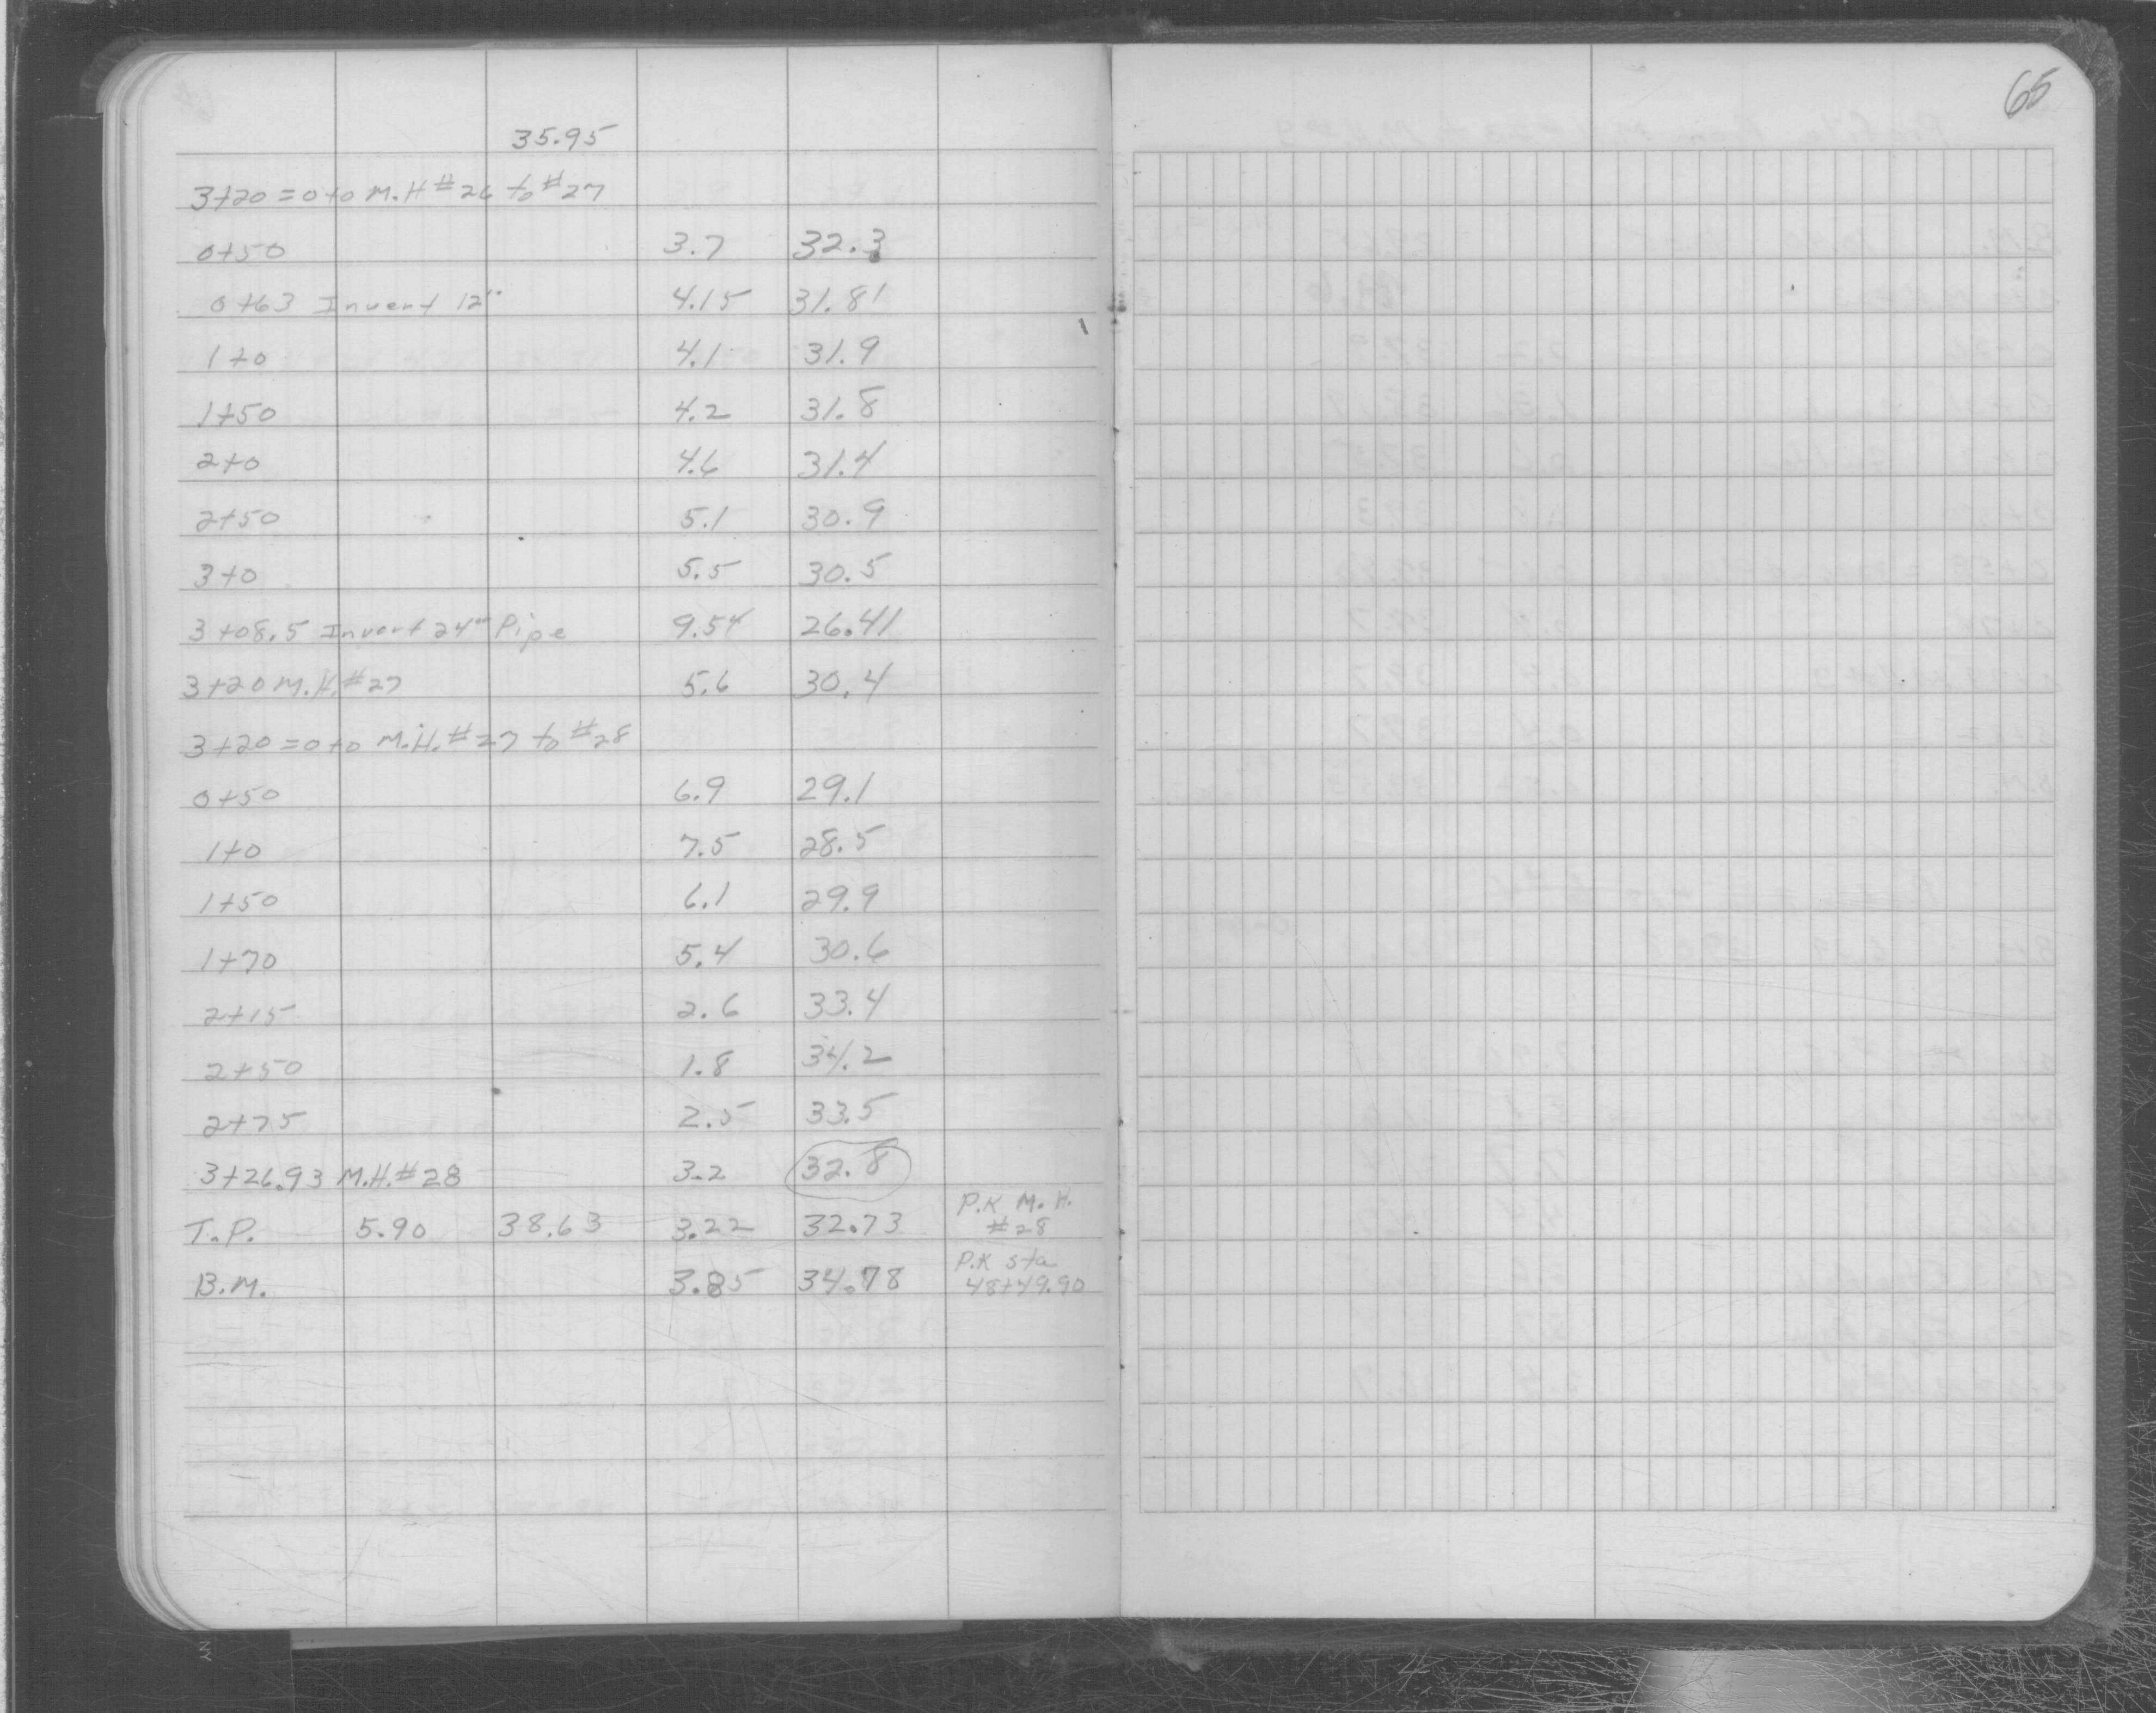 65
35.95
3+20 = 0+0 M.H #26 to #27
0+50 3.7 32.3
0+63 Invert 12" 4.15 31.81
1+0 4.1 31.9
1+50 4.2 31.8
2+0 4.6 31.4
2+50 5.1 30.9
3+0 5.5 30.5
3+08.5 Invert 24" Pipe 9.54 26.41
3+20 M.H. #27 5.6 30.4
3+20 = 0+0 M.H. #27 to #28
0+50 6.9 29.1
1+0 7.5 28.5
1+50 6.1 29.9
1+70 5.4 30.6
2+15 2.6 33.4
2+50 1.8 34.2
2+75 2.5 33.5
3+26.93 M.H. #28 3.2 32.8
P.K M.H.
T.P. 5.90 38.63 3.22 32.73 #28
P.K sta
B.M. 3.85 34.78 48+49.90